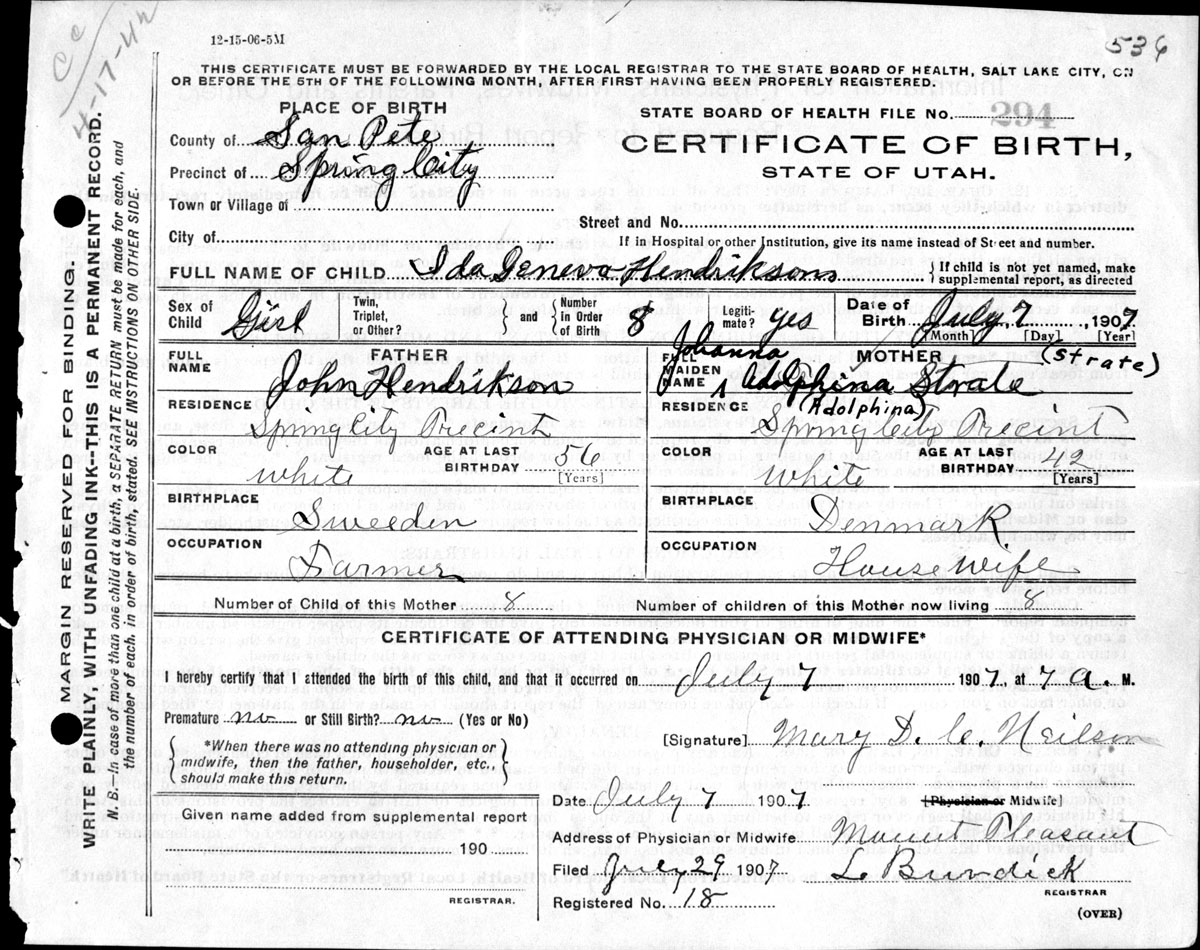 12-15-06-5M
536
CC
4-17-42
THIS CERTIFICATE MUST BE FORWARDED BY THE LOCAL REGISTRAR TO THE STATE BOARD OF HEALTH, SALT LAKE CITY, ON
OR BEFORE THE 5TH OF THE FOLLOWING MONTH, AFTER FIRST HAVING BEEN PROPERLY REGISTERED.
PLACE OF BIRTH
STATE BOARD OF HEALTH FILE No. 294
County of San Pete
CERTIFICATE OF BIRTH,
Precinct of Spring City
STATE OF UTAH.
Town or Village of
Street and No.
City of
If in Hospital or other Institution, give its name instead of Street and number.
FULL NAME OF CHILD Ida Geneva Hendriksons { If child is not yet named, make supplemental report, as directed
Sex of Child Girl Twin, Triplet, or Other? } and { Number in Order of Birth 8 Legiti- mate? yes Date of Birth July 7 1907
[Month] [Day] [Year]
FULL NAME FATHER John Hendrikson
FULL MAIDEN NAME MOTHER Johanna Adolphina Strate (Strate)
(Adolphina)
RESIDENCE Spring City Precint
RESIDENCE Spring City Precint
COLOR white AGE AT LAST BIRTHDAY 56 [Years]
COLOR White AGE AT LAST BIRTHDAY 42 [Years]
BIRTHPLACE Sweeden
BIRTHPLACE Denmark
OCCUPATION Farmer
OCCUPATION House Wife
Number of Child of this Mother 8 Number of children of this Mother now living 8
CERTIFICATE OF ATTENDING PHYSICIAN OR MIDWIFE*
I hereby certify that I attended the birth of this child, and that it occurred on July 7 1907, at 7 a. M.
Premature no or Still Birth? no (Yes or No)
[Signature] Mary D. C Neilson
*When there was no attending physician or
midwife, then the father, householder, etc.,
should make this return.
Date July 7 1907 [Physician or Midwife]
Given name added from supplemental report
190
REGISTRAR.
Address of Physician or Midwife Mount Pleasant
Filed July 29 1907 L Burdick
REGISTRAR
Registered No. 18
(OVER)
MARGIN RESERVED FOR BINDING.
WRITE PLAINLY, WITH UNFADING INK--THIS IS A PERMANENT RECORD.
N. B.--In case of more than one child at a birth, a SEPARATE RETURN must be made for each, and
the number of each, in order of birth, stated. SEE INSTRUCTIONS ON OTHER SIDE.